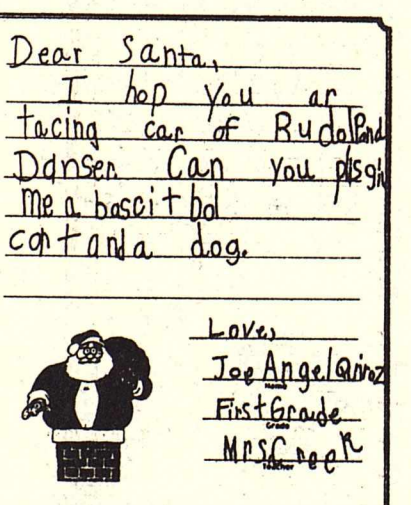 Dear Santa,
I hop you ar
tacing car of Rudolf and
Danser. Can you plsgiv
me a boscit bol
cort and a dog.
Love,
Joe Angel Quiroz
Name
First Grade
Grade
Mrs Creek
Teacher